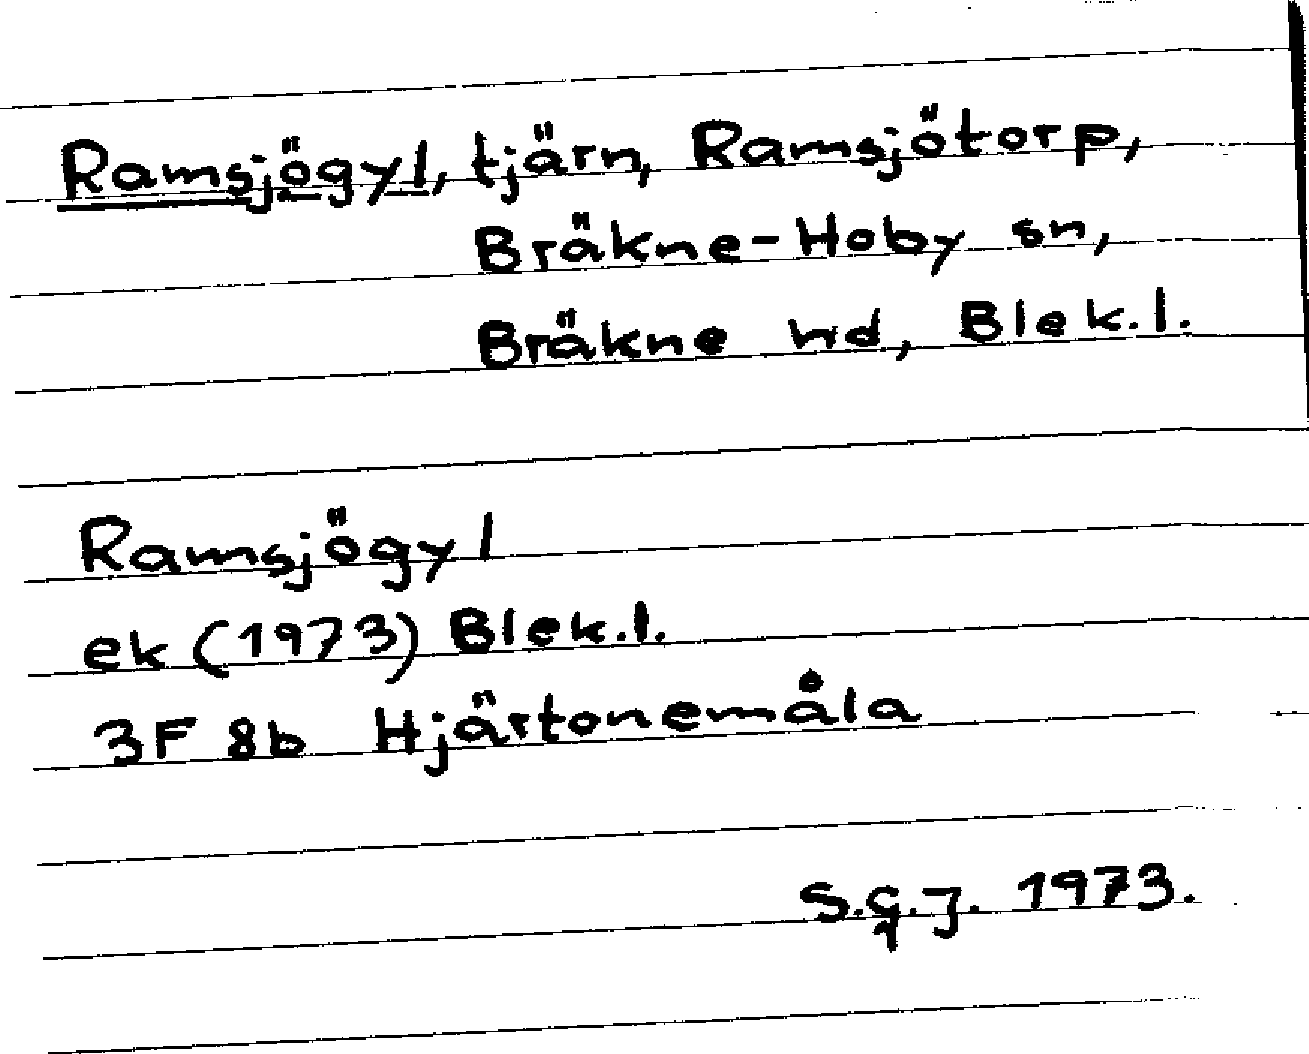 Ramsjögyl, tjärn, Ramsjötorp,
Bräkne-Hoby sn,
Bräkne hd, Blek.l.
Ramsjögyl
ek (1973) Blek.l.
3F 8b Hjärtonemåla
S.G.J. 1973.